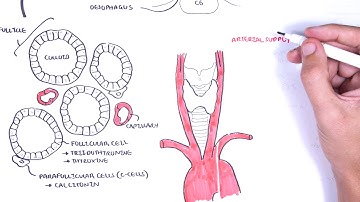 OESOPHAGUS
C6
FOLLICLE
COLLOID
ARTERIAL SUPPLY
CAPILLARY
FOLLICULAR CELL
→ TRIIODOTHYRONINE
→ THYROXINE
PARAFOLLICULAR CELLS (C-CELLS)
→ CALCITONIN